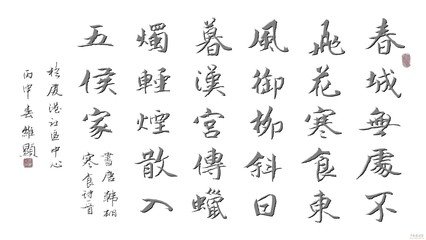 春城無處不
飛花寒食東
風御柳斜日
暮漢宮傳蠟
燭輕煙散入
五侯家
書唐韓翃
寒食詩首
於廈港社區中心
丙申春維顯